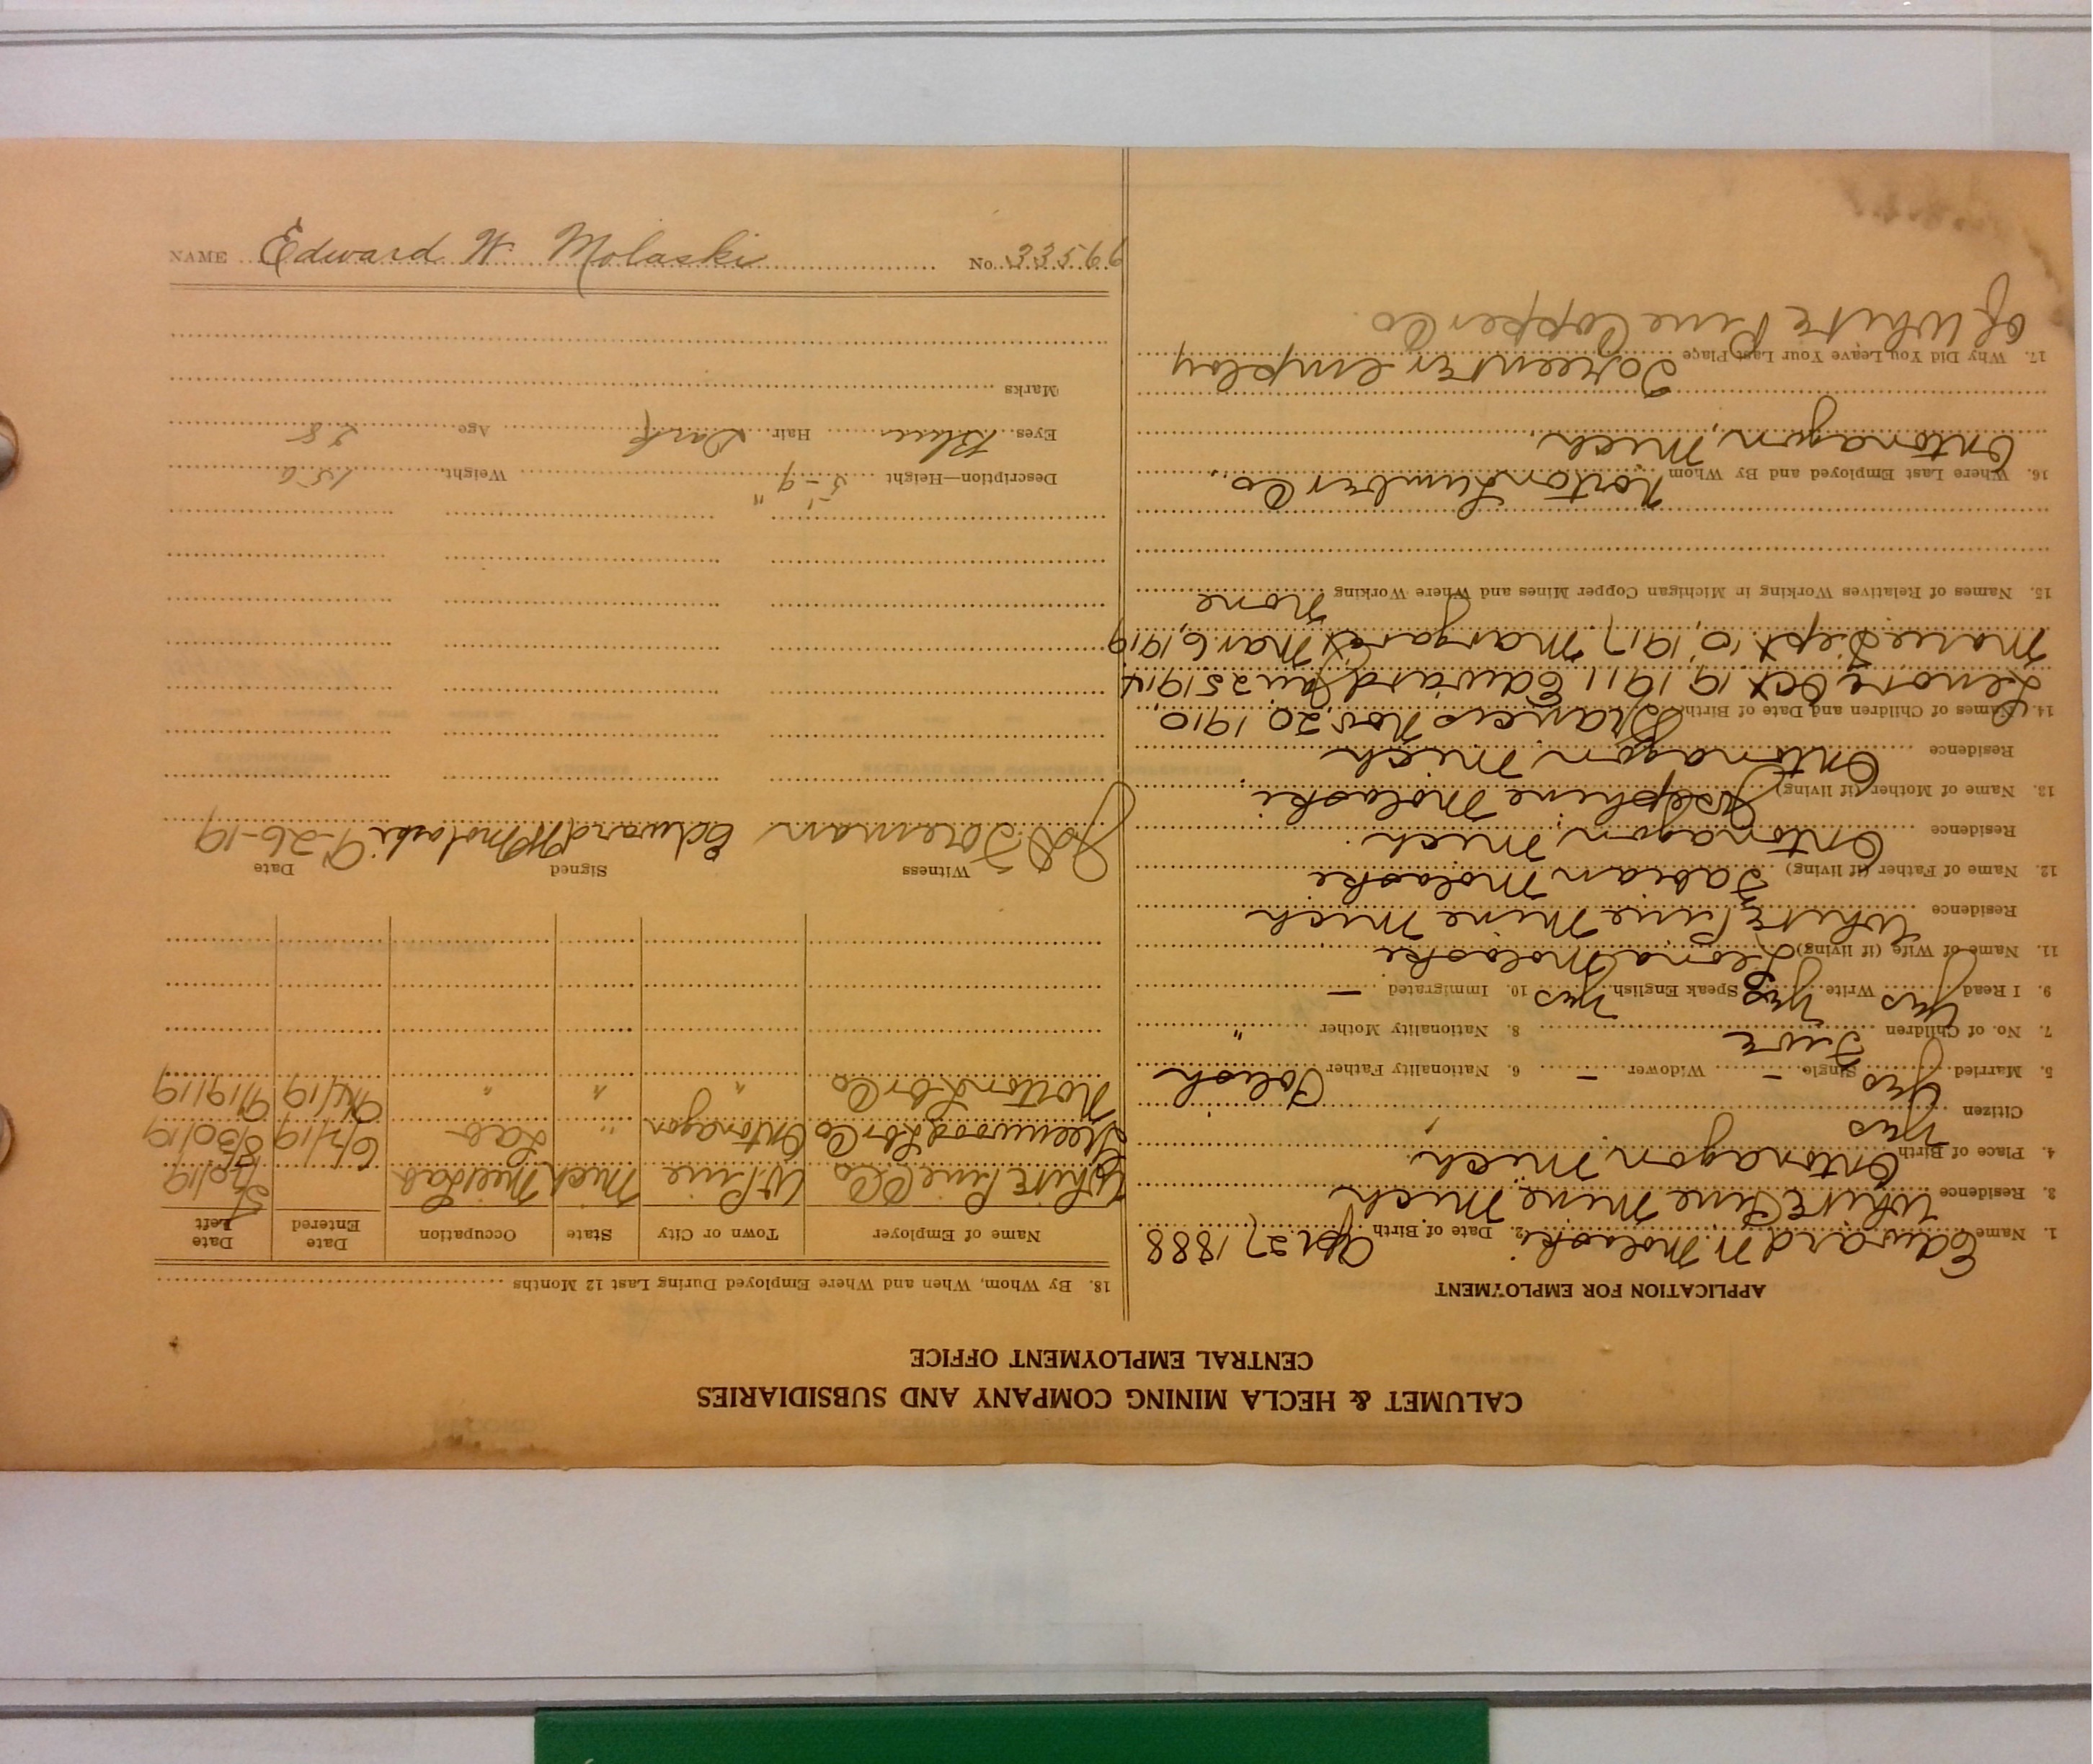 CALUMET & HECLA MINING COMPANY AND SUBSIDIARIES
CENTRAL EMPLOYMENT OFFICE
APPLICATION FOR EMPLOYMENT
1. Name Edward W. Molaski 2. Date of Birth Apr 27 1888
3. Residence White Pine Mine Mich
4. Place of Birth Ontonagon Mich
Citizen Yes
5. Married Yes Single – Widower – 6. Nationality Father Polish
7. No. of Children Five 8. Nationality Mother "
9. I Read Yes Write Yes Speak English Yes 10. Immigrated –
11. Name of Wife (if living) Leona Molaski
Residence White Pine Mine Mich
12. Name of Father (if living) Fabian Molaski
Residence Ontonagon, Mich.
13. Name of Mother (if living) Josephine Molaski
Residence Ontonagon Mich
14. Names of Children and Date of Birth Francis Nov. 20 1910
Lenore Oct 19 1911 Edward Jan 25 1914
Marie Sept 10, 1917 Margaret Mar 6, 1919
15. Names of Relatives Working in Michigan Copper Mines and Where Working None
16. Where Last Employed and By Whom Norton Lumber Co.
Ontonagon, Mich.
17. Why Did You Leave Your Last Place To reenter employ
of White Pine Copper Co.
18. By Whom, When and Where Employed During Last 12 Months
Name of Employer Town or City State Occupation Date Entered Date Left
White Pine C Co W Pine Mich 19
Greenwood Lbr Co Ontonagon " Lab 6/2/19 8/30/19
Norton Lbr Co " " " 9/1/19 9/19/19
Witness Signed Date
Foreman Edward W Molaski 9-26-19
Description—Height 5'-9" Weight 150
Eyes Blue Hair Dark Age
Marks
NAME Edward W. Molaski No. 33566